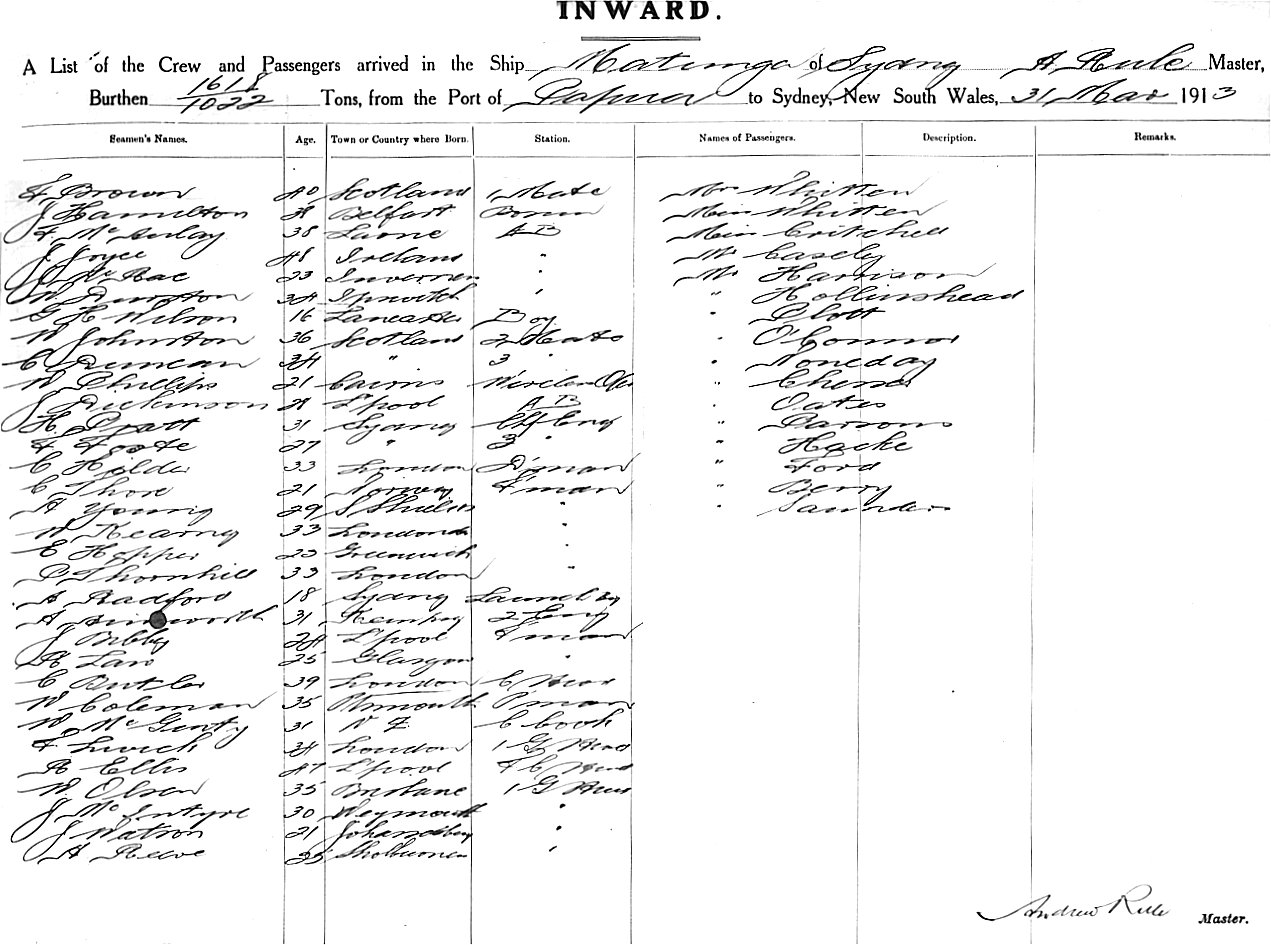 INWARD.
A List of the Crew and Passengers arrived in the Ship Matunga of Sydney A Rule Master,
Burthen 1618/1022 Tons, from the Port of Papua to Sydney, New South Wales, 31 Mar 1913
Seamen's Names. Age. Town or Country where Born. Station. Names of Passengers. Description. Remarks.
F Brown 40 Scotland 1 Mate Mrs Whitten
J Hamilton 38 Belfast Bosun Miss Whitten
F McAulay 38 Larne AB Miss Critchell
J Joyce 48 Ireland " Mr Casely
J McRae 23 Inverness " Mr Harrison
W 34 Ipswich " " Hollinshead
G H Wilson 16 Lancaster Boy "
W Johnston 36 Scotland 2 Mate " O'Connor
C Duncan 34 " 3 " " Noneday
W Phillips 21 Cairns Wireless "
J Dickinson 28 L'pool AB " Oates
H Pratt 31 Sydney Chf Eng " Parsons
F Foote 27 " 3 " " Hacke
C Holder 33 London D'man " Ford
C Thore 21 Norway F'man " Berry
A Young 29 S Shields " " Saunders
W Kearny 33 London "
E Hopper 23 Greenwich "
P Thornhill 33 London "
A Radford 18 Sydney
A 31 Kempsey 2 Eng
J Bibby 24 L'pool F'man
R Law 25 Glasgow "
C Butler 39 London
W Coleman 35 P'man
W McGinty 31 N Z C Cook
F 34 London
R Ellis 47 L'pool
W Olsen 35 Brisbane
J McIntyre 30 Weymouth "
J Watson 21 "
A Reeve "
Andrew Rule Master.